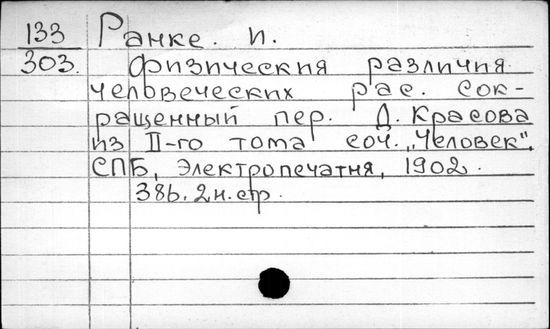 133
303.
Ранке. И.
Физическия различия
человеческих рас. Сок-
ращенный пер. Д. Красова
из II-го тома соч. „Человек".
СПБ, Электропечатня, 1902.
386. 2н. стр.